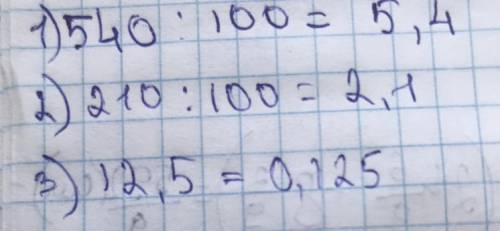 1) 540 : 100 = 5,4
2) 210 : 100 = 2,1
3) 12,5 = 0,125